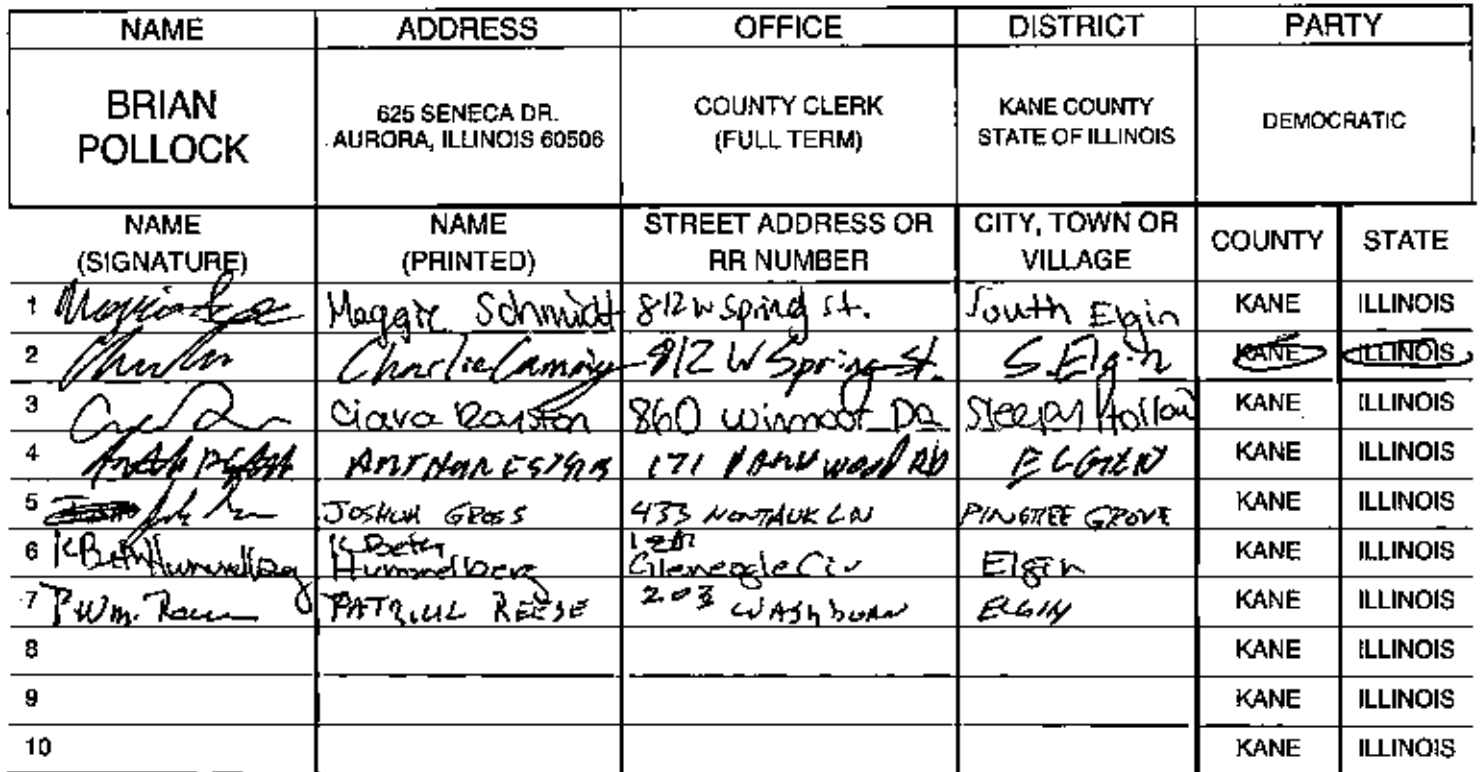 NAME ADDRESS OFFICE DISTRICT PARTY
BRIAN POLLOCK
625 SENECA DR. AURORA, ILLINOIS 60506
COUNTY CLERK (FULL TERM)
KANE COUNTY STATE OF ILLINOIS
DEMOCRATIC
NAME (SIGNATURE) NAME (PRINTED) STREET ADDRESS OR RR NUMBER CITY, TOWN OR VILLAGE COUNTY STATE
1 Maggie Schmidt 812 W Spring St. South Elgin KANE ILLINOIS
2 Charlie 812 W Spring St. S. Elgin KANE ILLINOIS
3 Ciara Ralston 860 Winmoor Dr Sleepy Hollow KANE ILLINOIS
4 171 RD ELGIN KANE ILLINOIS
5 JOSHUA GROSS 433 MONTAUK LN PINGREE GROVE KANE ILLINOIS
6 K Beth Hummelberg K Beth Hummelberg Gleneagle Cir Elgin KANE ILLINOIS
7 P Wm. Reese PATRICK REESE 203 WASHBURN ELGIN KANE ILLINOIS
8 KANE ILLINOIS
9 KANE ILLINOIS
10 KANE ILLINOIS